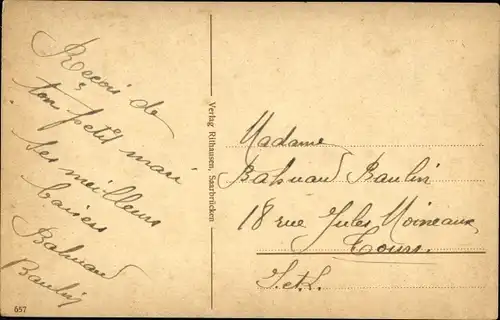 Reçois de
ton petit mari
ses meilleurs
baisers
Bahuaud
Baulin
Verlag Rithausen, Saarbrücken
Madame
Bahuaud Baulin
18 rue Jules Moineaux
Tours.
I.et.L.
657